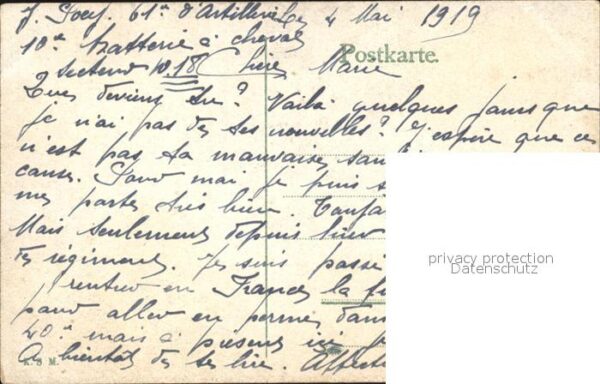 J. Joly. 61e d'Artillerie Le 4 Mai 1919
10e Batterie à cheval
Secteur 10.18
Postkarte.
Chère Marie
Que deviens tu? Voilà quelques jours que
je n'ai pas de tes nouvelles? J'espère que ce
n'est pas ta mauvaise
cause. Pour moi je puis
me porte très bien.
Mais seulement depuis hier
de régiment. Je suis passé
rentrer en France la
pour aller en perme dans
40e mais à présent ici
A bientôt de tes lire.
R. & M.
privacy protection
Datenschutz